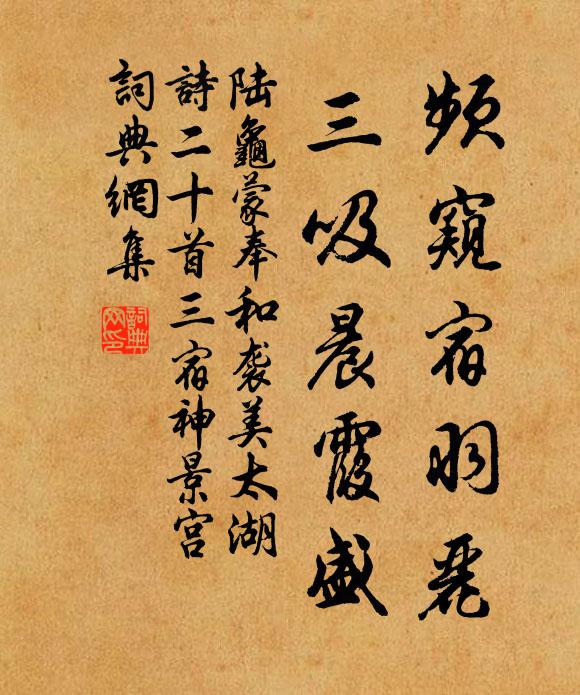 頻窺宿羽麗
三吸晨霞盛
陆龜蒙奉和袭美太湖
詩二十首三宿神景宫
詞典網集
詞典網印